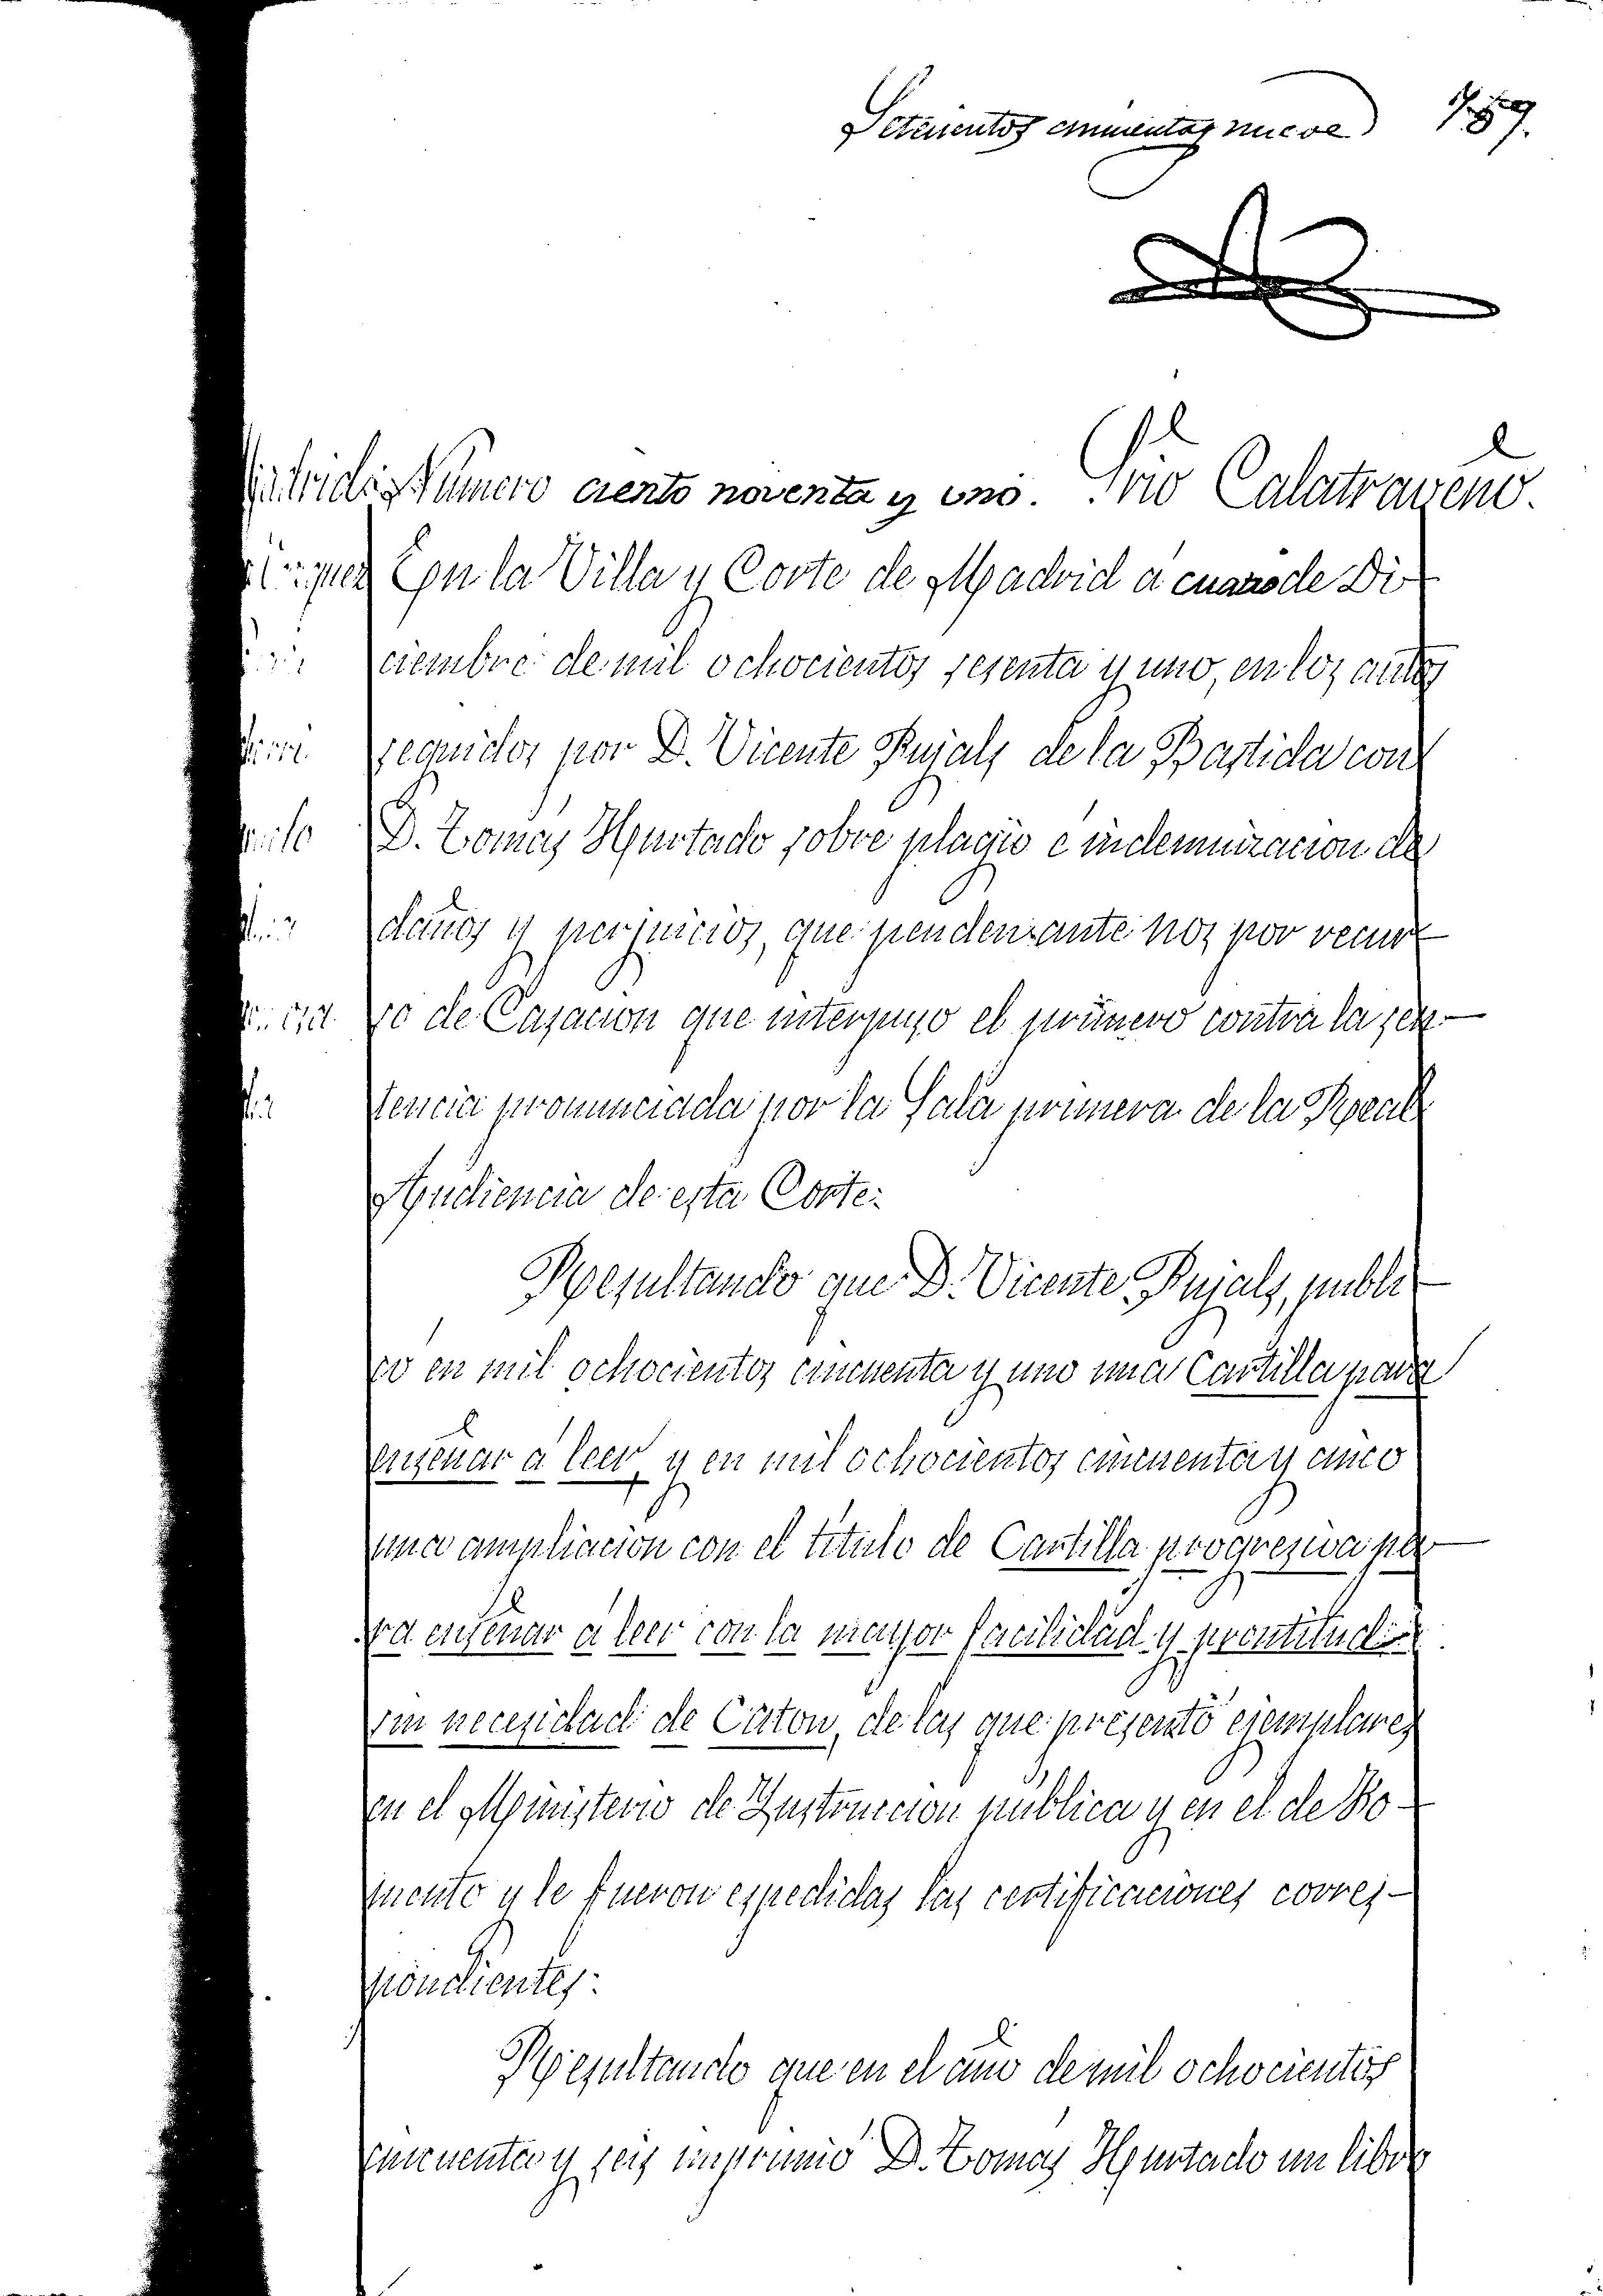 Setecientos cincuenta y nueve 759.
Número ciento noventa y uno. Srio Calatraveño.
En la Villa y Corte de Madrid á cuatro de Di
ciembre de mil ochocientos sesenta y uno, en los autos
seguidos por D. Vicente Pujals de la Bastida con
D. Tomás Hurtado sobre plagio é indemnizacion de
daños y perjuicios, que penden ante nos por recur
so de Casacion que interpuso el primero contra la sen-
tencia pronunciada por la Sala primera de la Real
Audiencia de esta Corte:
Resultando que D. Vicente Pujals, publi
có en mil ochocientos cincuenta y uno una Cartilla para
enseñar á leer, y en mil ochocientos cincuenta y cinco
una ampliacion con el título de Cartilla progresiva pa
ra enseñar á leer con la mayor facilidad y prontitud
sin necesidad de Caton, de las que presentó ejemplares
en el Ministerio de Instruccion pública y en el de Fo-
mento y le fueron espedidas las certificaciones corres-
pondientes:
Resultando que en el año de mil ochocientos
cincuenta y seis imprimió D. Tomás Hurtado un libro